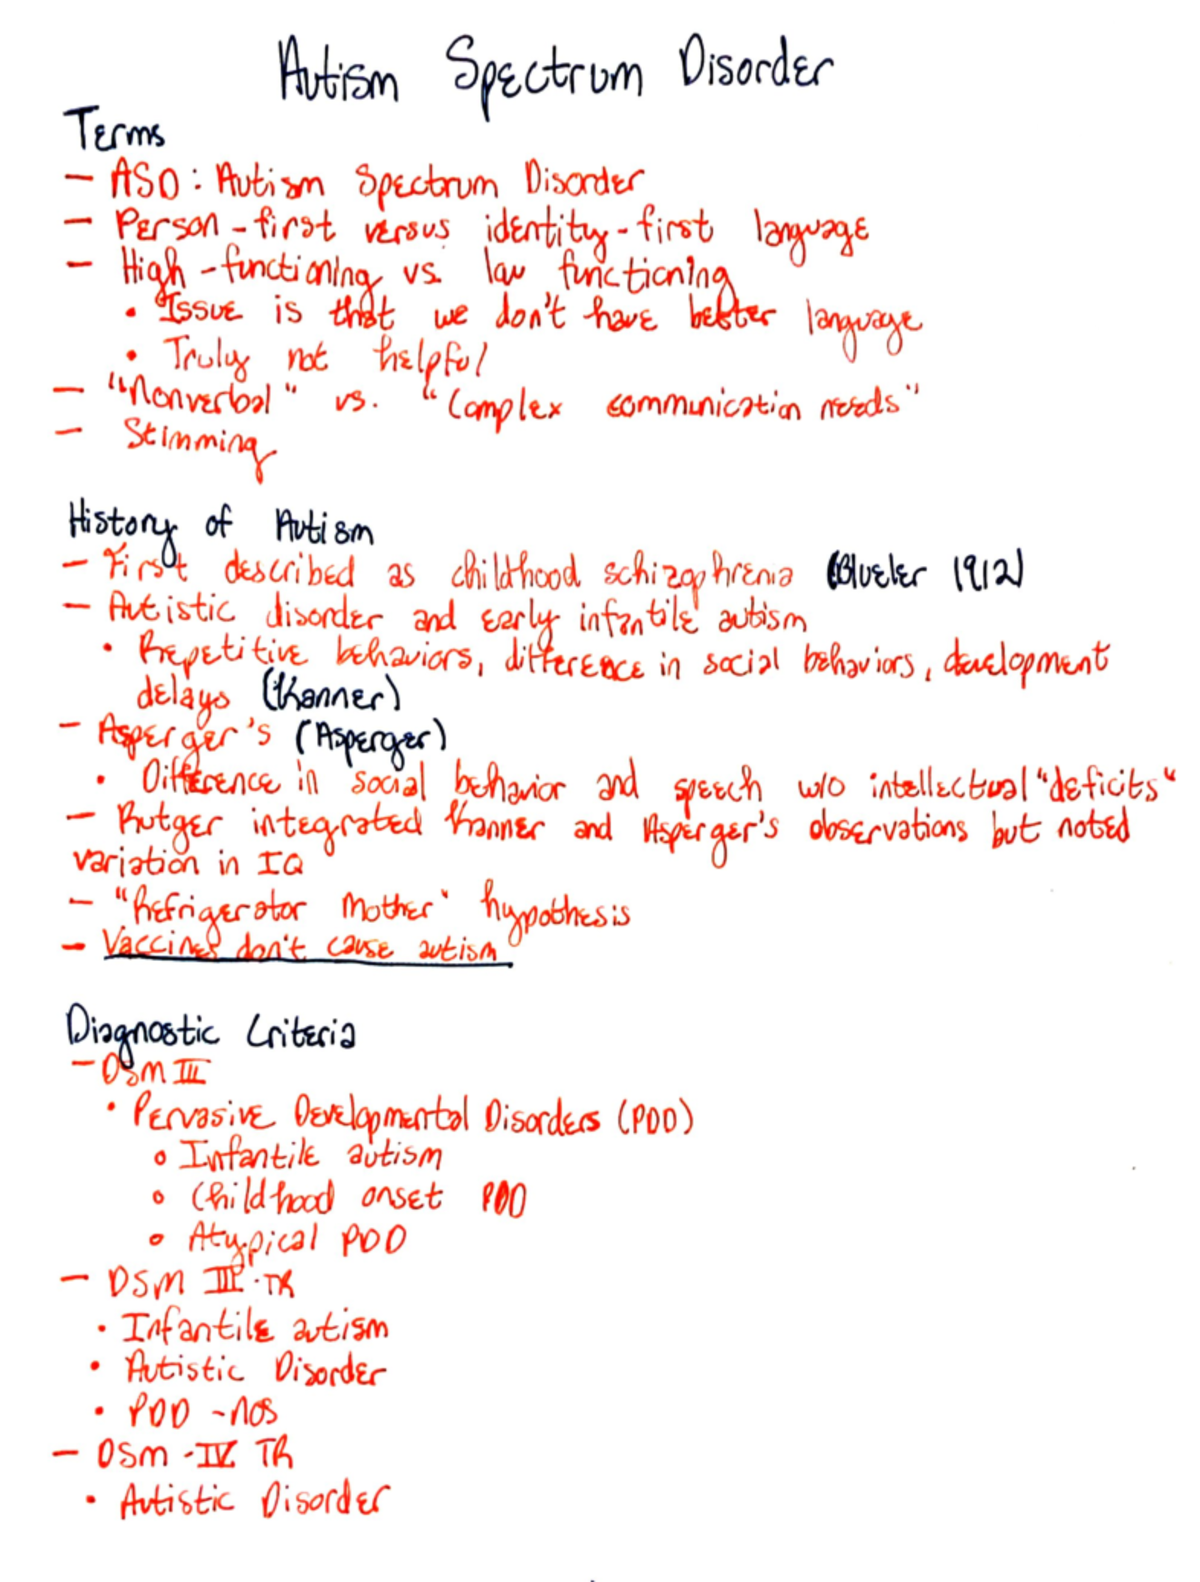 Autism Spectrum Disorder
Terms
- ASD: Autism Spectrum Disorder
- Person-first versus identity-first language
- High-functioning vs. low functioning
• Issue is that we don't have better language
• Truly not helpful
- "Nonverbal" vs. "Complex communication needs"
- Stimming
History of Autism
- First described as childhood schizophrenia (Blueler 1912)
- Autistic disorder and early infantile autism
• Repetitive behaviors, difference in social behaviors, development
delays (Kanner)
- Asperger's (Asperger)
• Difference in social behavior and speech w/o intellectual "deficits"
- Rutger integrated Kanner and Asperger's observations but noted
variation in IQ
- "Refrigerator Mother" hypothesis
- Vaccines don't cause autism
Diagnostic Criteria
- DSM III
• Pervasive Developmental Disorders (PDD)
o Infantile autism
o Childhood onset PDD
o Atypical PDD
- DSM III-TR
• Infantile autism
• Autistic Disorder
• PDD-NOS
- DSM-IV TR
• Autistic Disorder